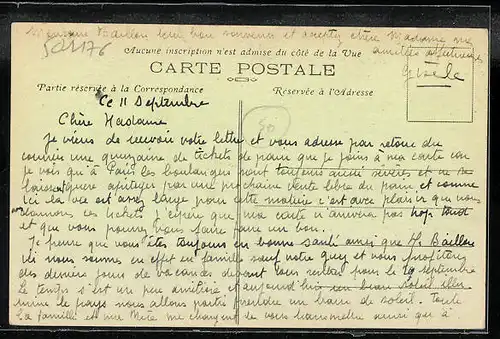 Monsieur Baillou leur bon souvenir et acceptez chère Madame mes
501176 amitiés affectueuses
Aucune inscription n'est admise du côté de la Vue
Gisèle
CARTE POSTALE
Partie réservée à la Correspondance
Réservée à l'Adresse
Ce 11 Septembre
50
Chère Madame
Je viens de recevoir votre lettre et vous adresse par retour du
courrier une quinzaine de tickets de pain que je joins à ma carte car
je vois qu'à Paris les boulangers sont toujours aussi sévères et ne se
laissent guère apitoyer par une prochaine vente libre du pain et comme
ici la vie est assez large pour cette matière c'est avec plaisir que nous
donnons ces tickets. J'espère que ma carte n'arrivera pas trop tard
et que vous pourrez vous faire faire un bon.
Je pense que vous êtes toujours en bonne santé ainsi que M. Baillou
ici nous sommes en effet en famille sauf votre Guy et nous profitons
des derniers jours de vacances devant nous rentrer pour le 29 septembre
Le temps s'est un peu amélioré et aujourd'hui un beau soleil illu-
mine le pays nous allons partir prendre un bain de soleil. Toute
la famille et ma Mère me chargent de vous transmettre ainsi que à